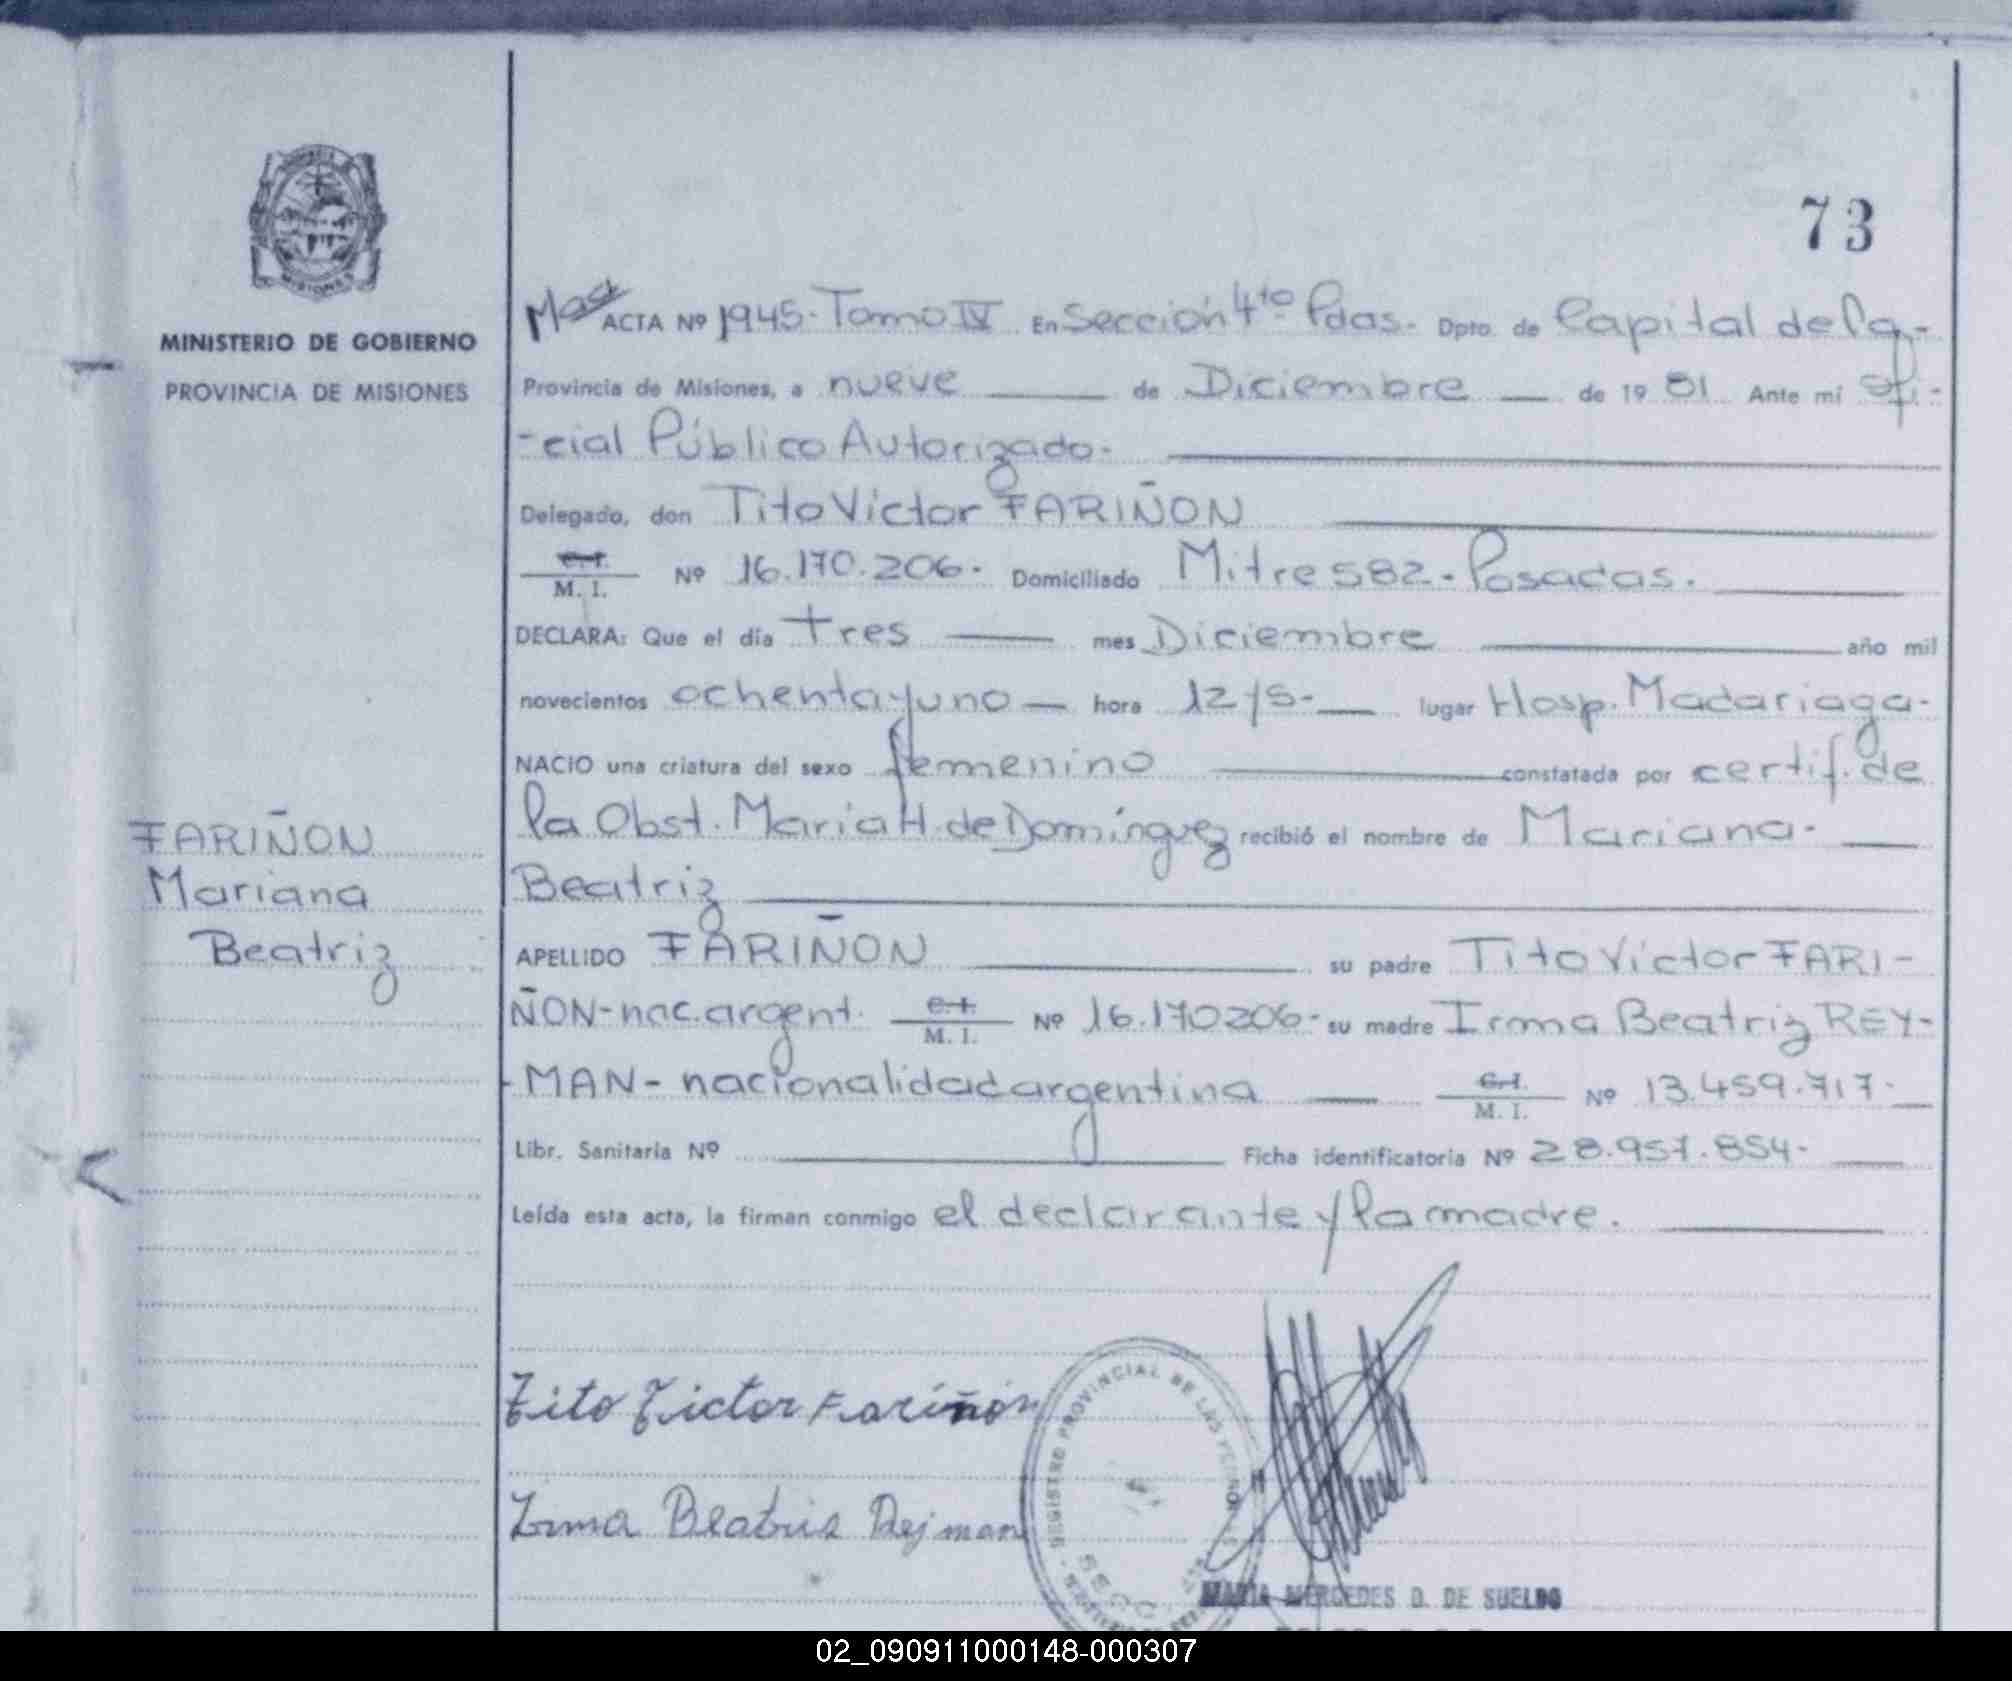 73
MINISTERIO DE GOBIERNO
PROVINCIA DE MISIONES
ACTA Nº 1945. Tomo IV En Sección 4to. Pdas. Dpto. de Capital de la
Provincia de Misiones, a nueve de Diciembre de 1981 Ante mí ofi-
-cial Público Autorizado.
Delegado, don Tito Victor FARIÑON
C.I. M. I. Nº 16.170.206. Domiciliado Mitre 582. Posadas.
DECLARA: Que el día tres mes Diciembre año mil
novecientos ochenta y uno hora 12 y 5. lugar Hosp. Madariaga.
NACIO una criatura del sexo femenino constatada por certif. de
la Obst. Maria H. de Domínguez recibió el nombre de Mariana.
Beatriz
FARIÑON
Mariana
Beatriz
APELLIDO FARIÑON su padre Tito Victor FARI-
ÑON-nac. argent. C.I. M. I. Nº 16.170206. su madre Irma Beatriz REY-
-MAN- nacionalidad argentina C.I. M. I. Nº 13.459.717.
Libr. Sanitaria Nº Ficha identificatoria Nº 28.957.854.
Leída esta acta, la firman conmigo el declarante y la madre.
Tito Victor Fariñon
Irma Beatris Rejman
REGISTRO PROVINCIAL DE LAS PERSONAS
SECC.
MARIA MERCEDES D. DE SUELDO
02_090911000148-000307